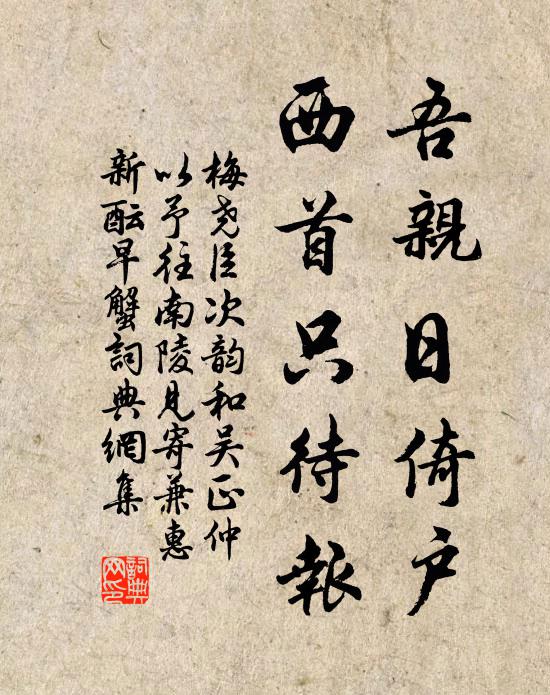 吾親日倚户
西首只待報
梅尧臣次韵和吴正仲
以予往南陵見寄兼惠
新酝早蟹詞典網集
詞典
网印